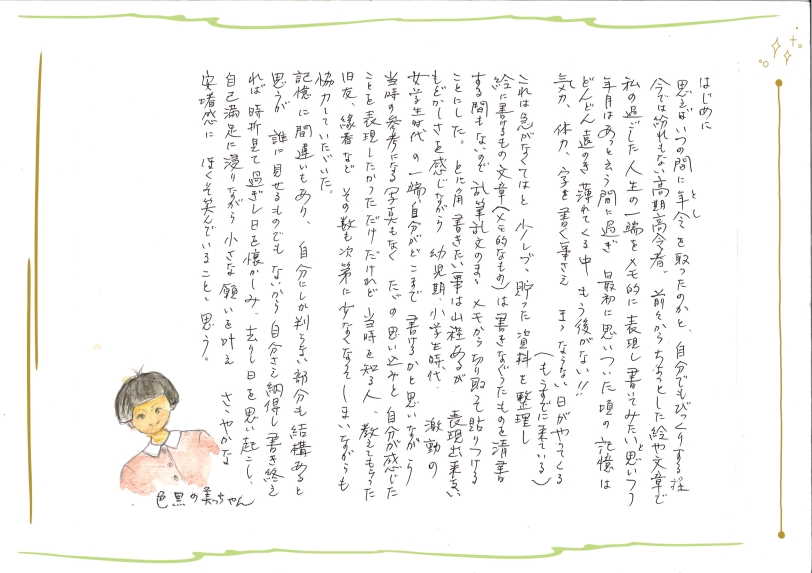 はじめに
思えばいつの間に年令を取ったのかと、自分でもびっくりする程
とし
今では紛れもない高期高令者。前々からちょっとした絵や文章で
私の過ごした人生の一端をメモ的に表現し書いてみたいと思いつつ
年月はあっと云う間に過ぎ 最初に思いついた頃の記憶は
どんどん遠のき薄れてくる中 もう後がない!!
気力、体力、字を書く事さえ まゝならない日がやってくる
(もうすでに来ている)
これは急がなくてはと 少しづゝ貯った資料を整理し
絵に書けるもの文章(メモ的なもの)は書きなぐったものを清書
する間もないので乱筆乱文のまゝメモから切り取って貼りつける
ことにした。とに角書きたい事は山程あるが 表現出来ない
もどかしさを感じながら 幼児期、小学生時代、 激動の
女学生時代の一端、自分がどこまで書けるかと思いながら
当時の参考になる写真もなく たゞの思い込みと自分が感じた
ことを表現したかっただけだけれど 当時を知る人、教えてもらった
旧友、縁者など その数も次第に少なくなってしまいながらも
協力していただいた。
記憶に間違いもあり 自分にしか判らない部分も結構あると
思うが 誰に見せるものでもないから自分さえ納得し書き終え
れば時折見て過ぎし日を懐かしみ、去りし日を思い起こし、
自己満足に浸りながら小さな願いを叶え さゝやかな
安堵感に ほくそ笑んでいることゝ思う。
色黒の美っちゃん